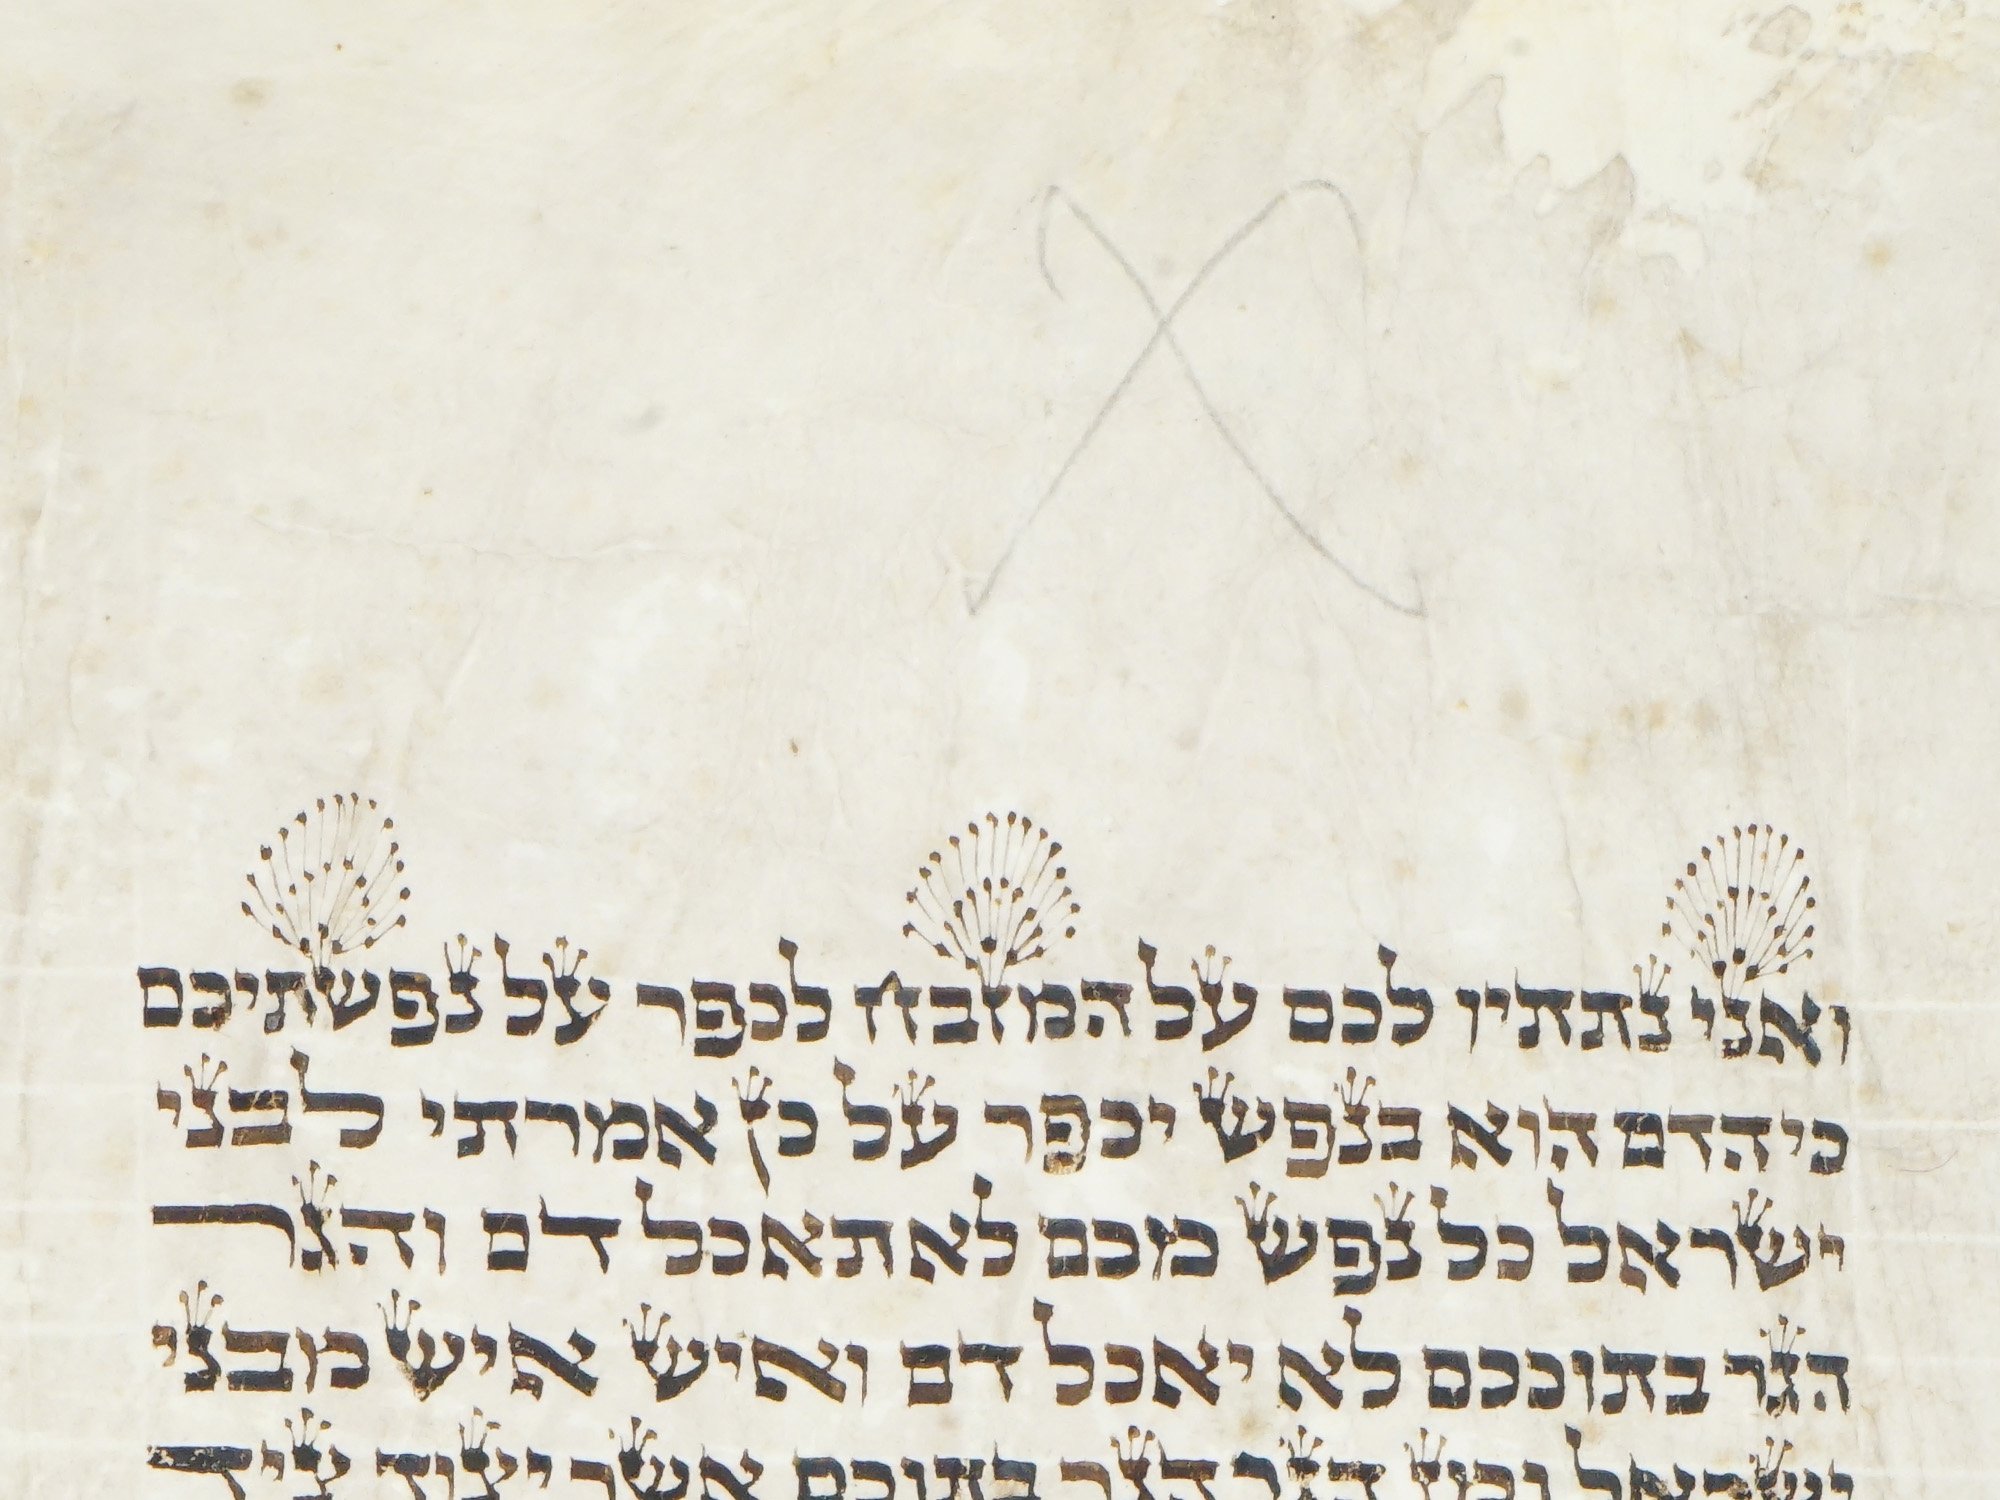 ואני נתתיו לכם על המזבח לכפר על נפשתיכם
כי הדם הוא בנפש יכפר על כן אמרתי לבני
ישראל כל נפש מכם לא תאכל דם והגר
הגר בתוככם לא יאכל דם ואיש איש מבני
ישראל ומן הגר הגר בתוכם אשר יצוד ציד